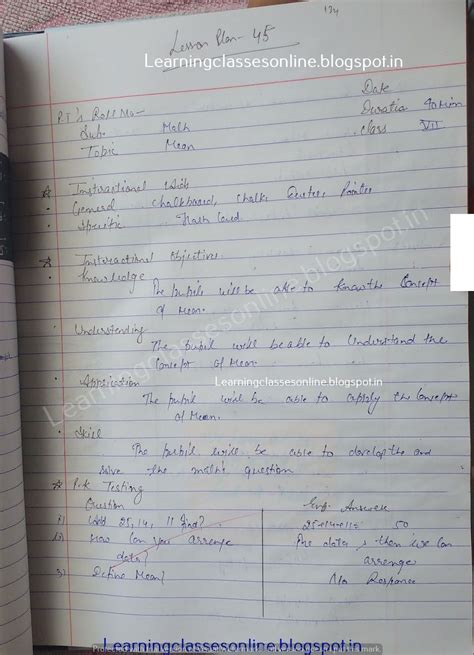 134
Lesson Plan- 45
Learningclassesonline.blogspot.in
Date
P.T's Roll No-
Duration 40 min
Sub. Math
Class VII
Topic Mean
Instructional Aids
General chalkboard, chalk Duster, Pointer
Specific Flash Card
Instructional Objectives
Knowledge
The pupil will be able to know the Concept
of Mean.
Understanding
The pupil will be able to Understand the
Concept of Mean
Application
Learningclassesonline.blogspot.in
The pupil will be able to apply the Concept
of Mean.
Skill
The pupil will be able to develop the and
solve the maths question
P.K Testing
Question
Answer
i) Add 25, 14, 11 find?
50
ii) How can you arrange
data?
data, then we can
arrange
3) Define Mean?
No Response
Learningclassesonline.blogspot.in
Learningclassesonline.blogspot.in